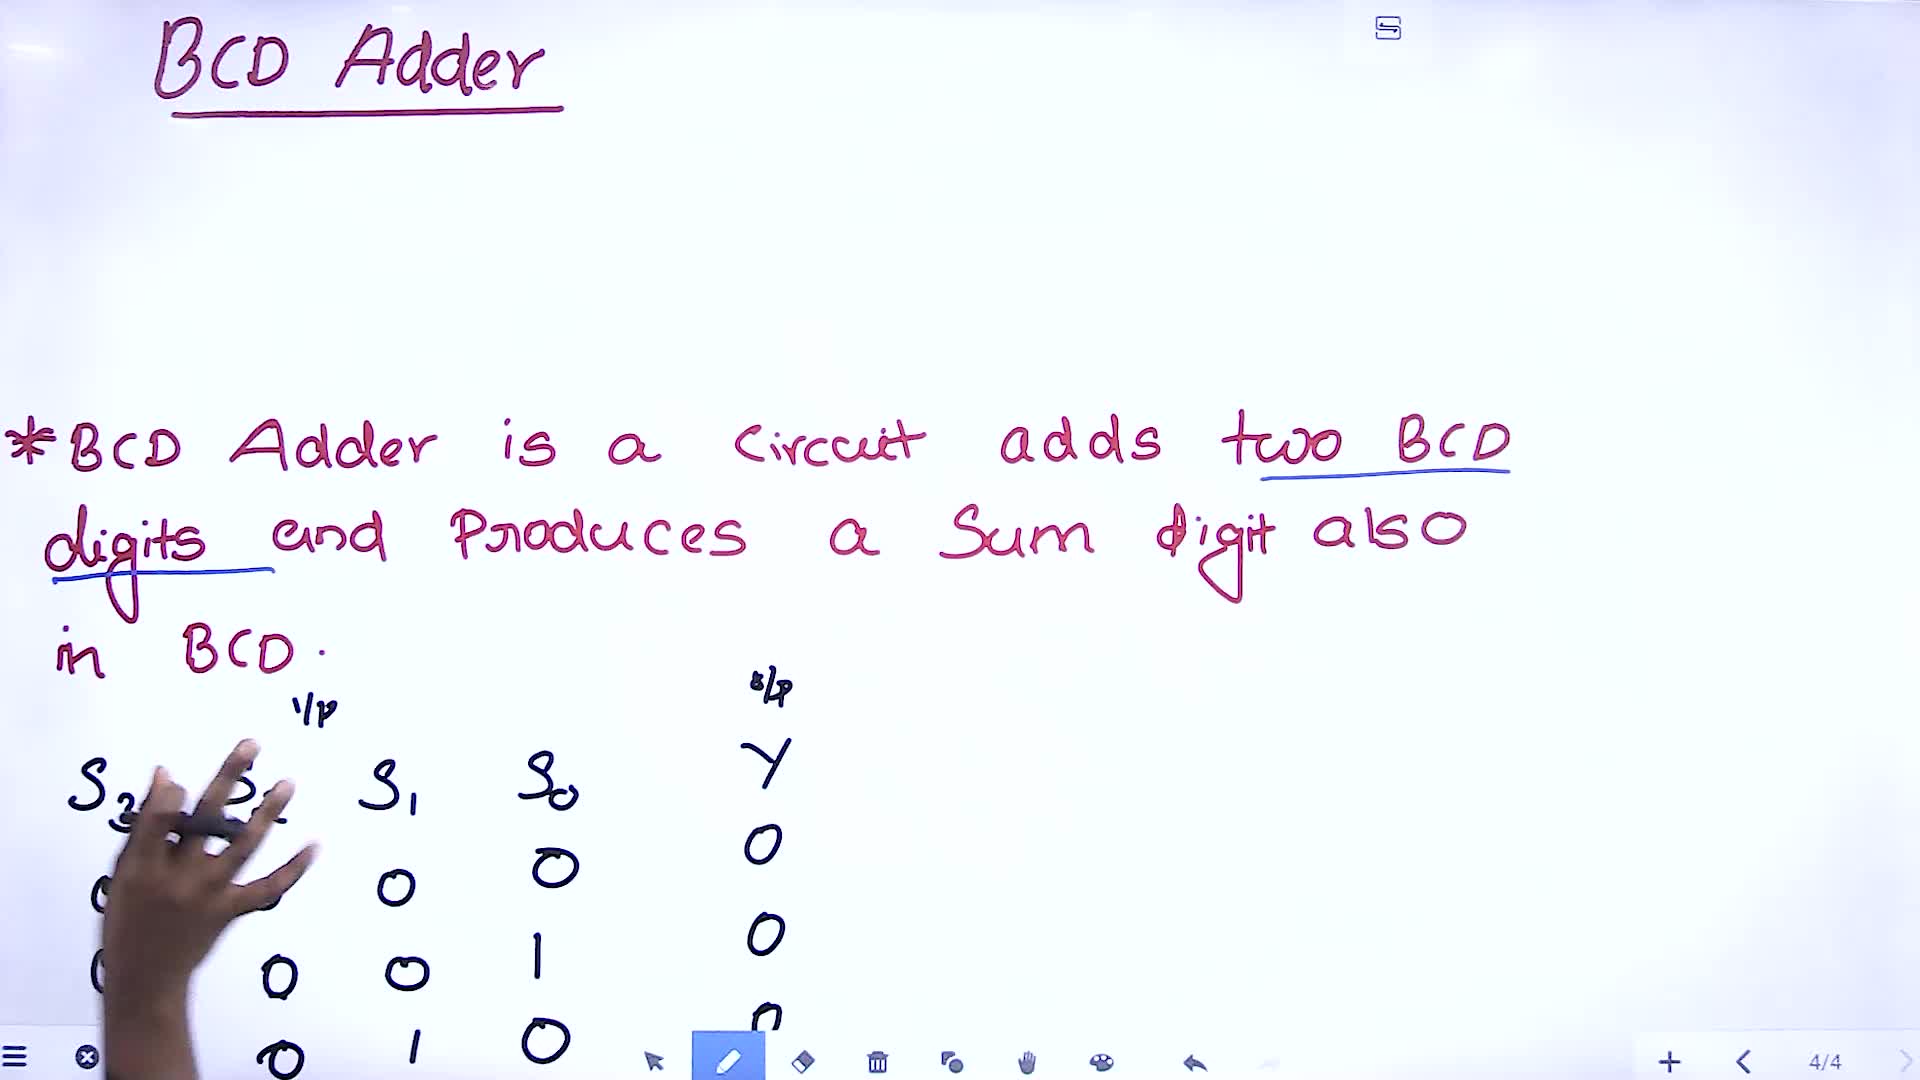 BCD Adder
*BCD Adder is a circuit adds two BCD
digits and Produces a Sum digit also
in BCD.
I/P O/P
S3 S2 S1 S0 Y
0 0 0 0
0 0 0 1 0
0 1 0 0
4/4